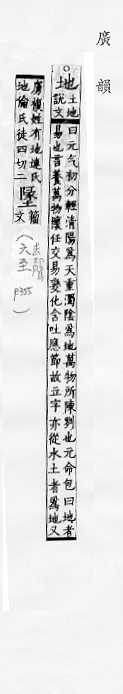 廣韻
地 土地 說文曰元气初分輕清陽爲天重濁陰爲地萬物所陳列也元命包曰地者
易也言養萬物懷任交易變化含吐應節故立字亦從水土者爲地又
虜複姓有地連氏
地倫氏徒四切二
墬 籀文
去聲
六至
P355